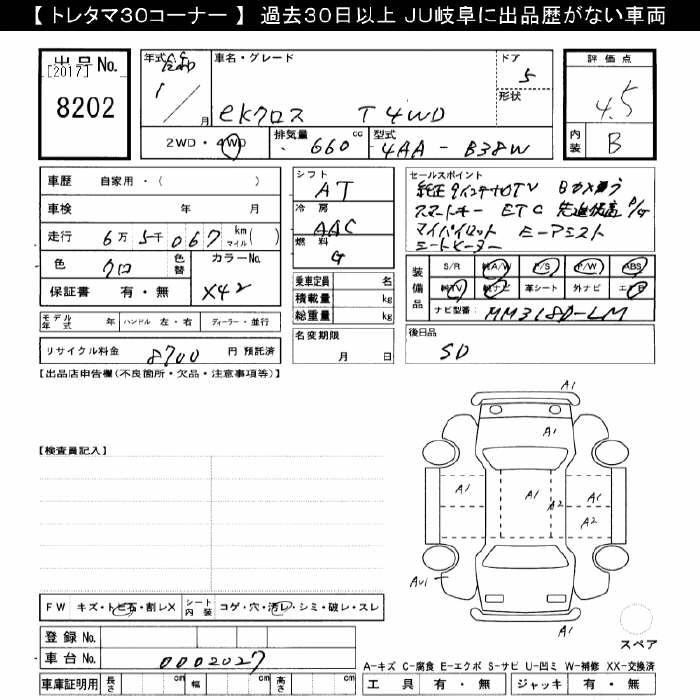 【 トレタマ30コーナー 】 過去30日以上 JU岐阜に出品歴がない車両
出品No.
[2017]
8202
年式
1 / 月
車名・グレード
ekクロス T 4WD
ドア
5
形状
評価点
4.5
内装
B
2WD・4WD
排気量
660 cc
型式
4AA - B38W
車歴 自家用・( )
車検 年 月
走行 6万 5千 067 km マイル ( )
色 クロ
色替
カラーNo.
X42
保証書 有・無
シフト
AT
冷房
AAC
燃料
G
乗車定員 名
積載量 kg
総重量 kg
セールスポイント
スマートキー ETC
マイパイロット
シートヒーター
装備品
S/R A/W P/S P/W ABS
TV ナビ 革シート 外ナビ エアB
ナビ型番 MM318D-LM
モデル年式 年 ハンドル 左・右 ディーラー・並行
リサイクル料金 8700 円 預託済
名変期限
月 日
後日品
SD
【出品店申告欄(不良箇所・欠品・注意事項等)】
【検査員記入】
A1
A1
A1
A1
A1
A2
A1
A2
AU1
A1
FW キズ・トビ石・割レX
シート内装 コゲ・穴・汚レ・シミ・破レ・スレ
登録No.
車台No. 0002027
車庫証明用 長さ cm 幅 cm 高さ cm
スペア
A-キズ C-腐食 E-エクボ S-サビ U-凹ミ W-補修 XX-交換済
工具 有・無 ジャッキ 有・無